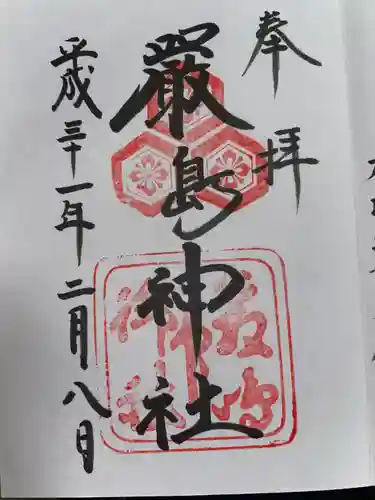 奉拝
厳島神社
平成三十一年二月八日